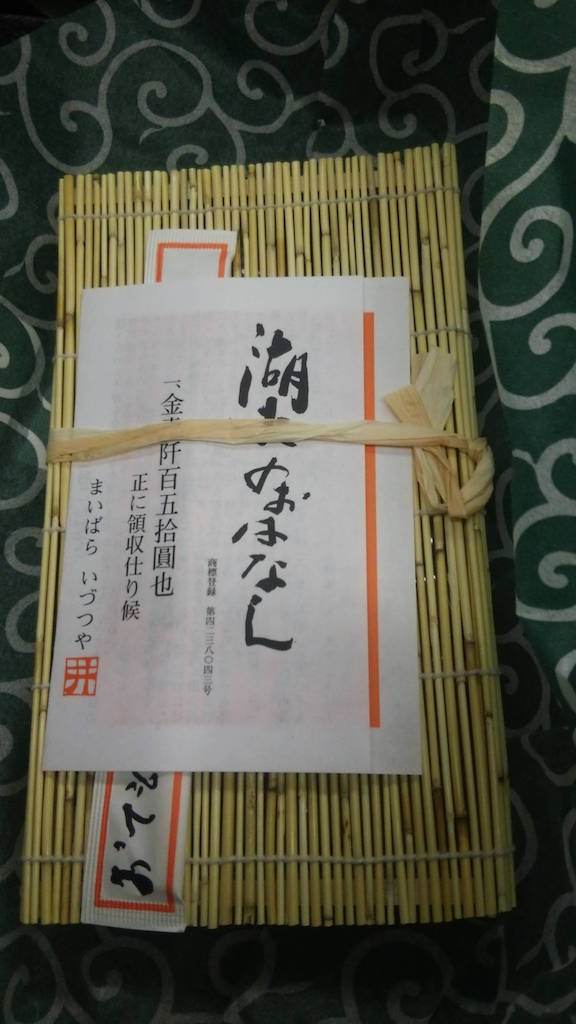 湖 のおはなし
商標登録 第四二三八〇四三号
一、金 阡百五拾圓也
正に領収仕り候
まいばら いづつや
井
おて